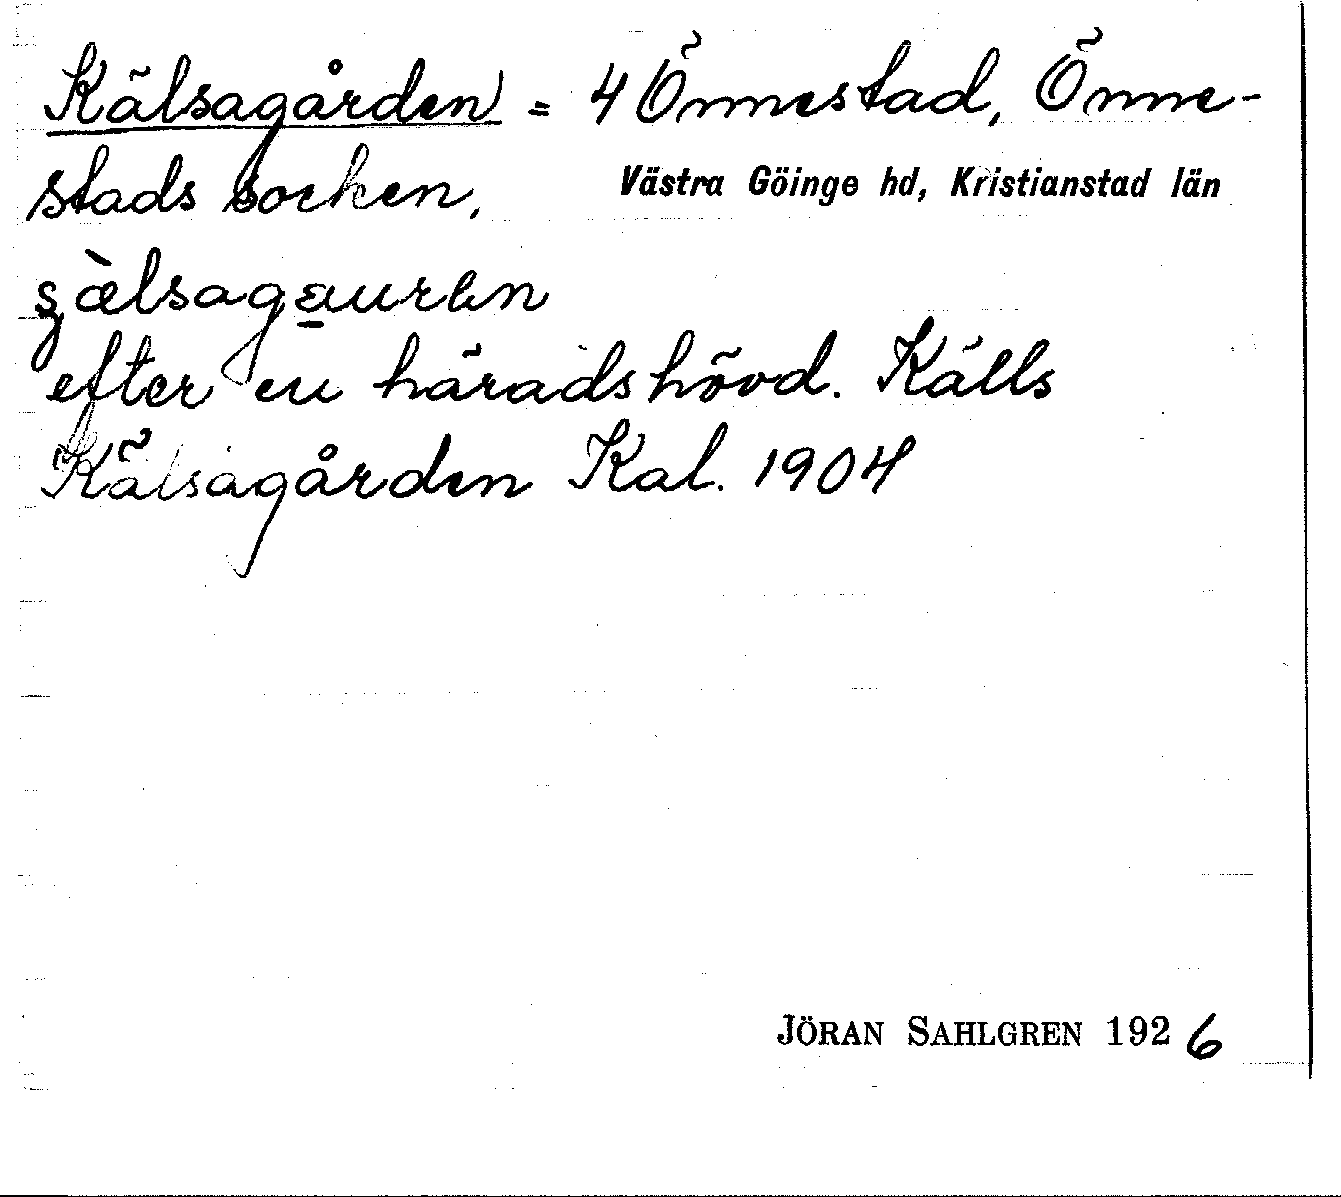 Kälsagården = 4 Önnestad, Önne-
stads socken, Västra Göinge hd, Kristianstad län
efter en häradshövd. Källs
Kälsagården Kal. 1904
JÖRAN SAHLGREN 1926